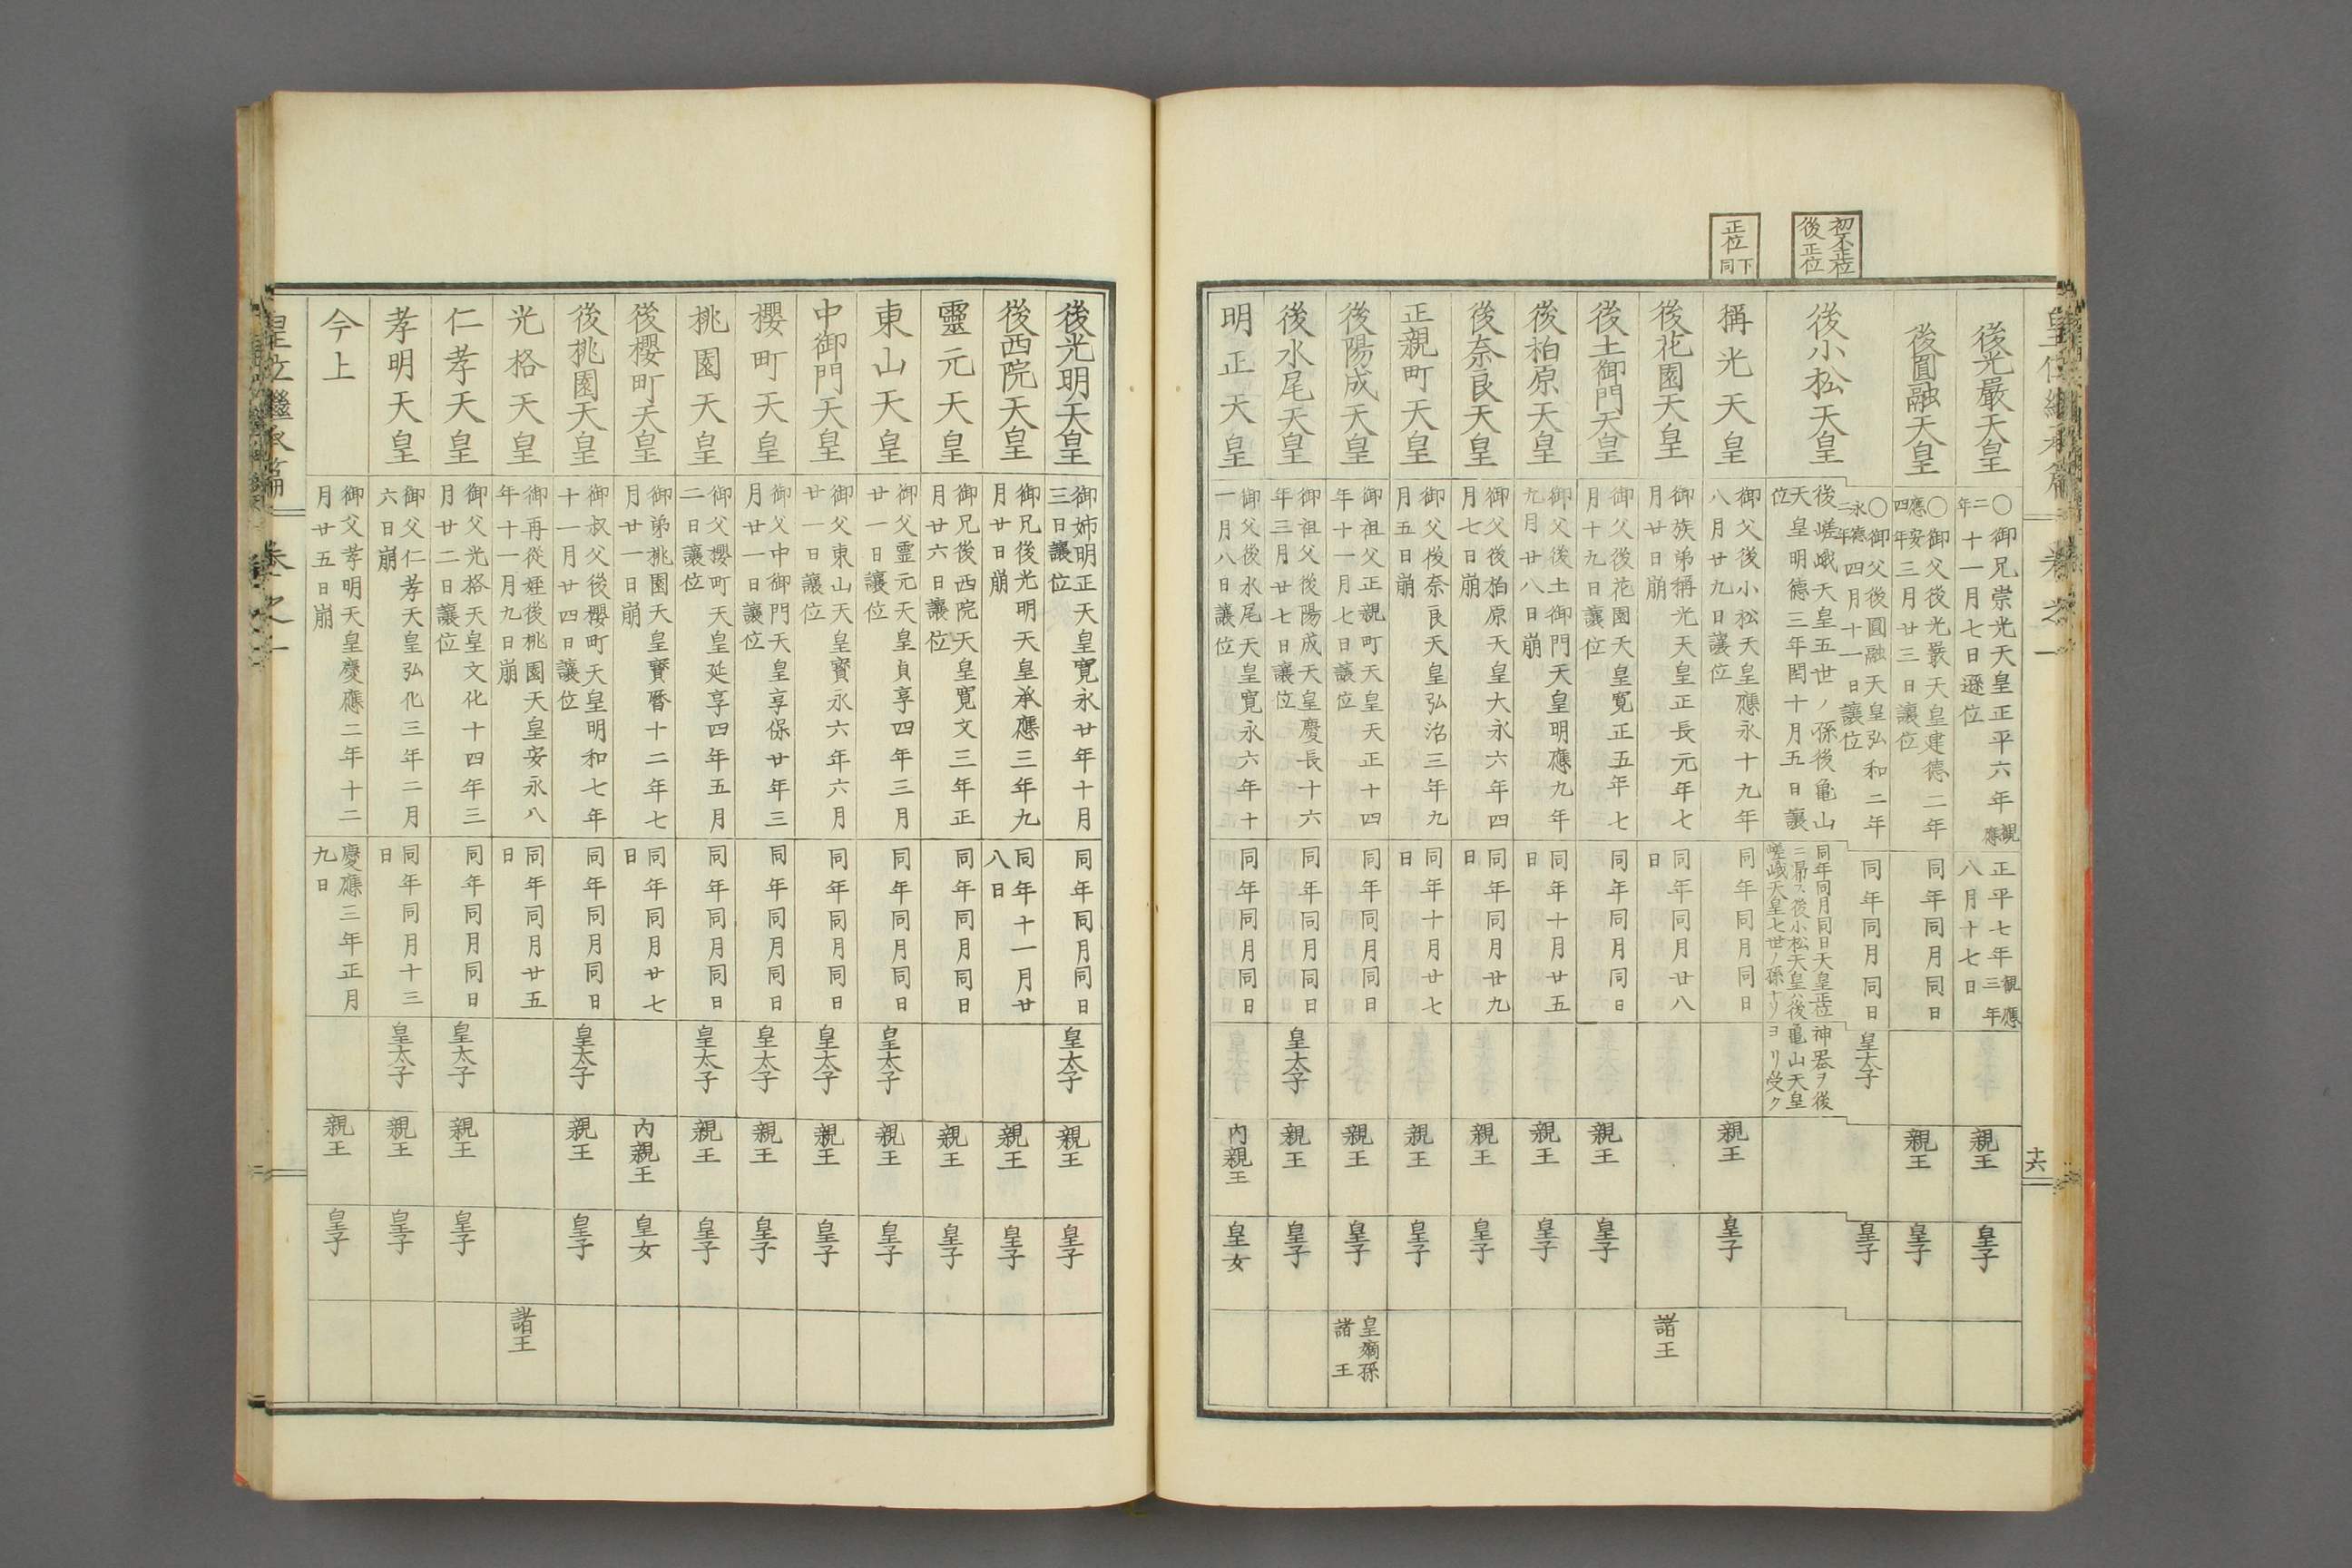 皇位繼承篇 卷之一
十六
後光嚴天皇
〇御兄崇光天皇正平六年觀應
二年十一月七日遜位
正平七年觀應三年
八月十七日
親王
皇子
後圓融天皇
〇御父後光嚴天皇建德二年
應安四年三月廿三日讓位
同年同月同日
親王
皇子
初不正位
後正位
後小松天皇
〇御父後圓融天皇弘和二年
永德二年四月十一日讓位
同年同月同日
皇太子
皇子
後嵯峨天皇五世ノ孫後龜山
天皇明德三年閏十月五日讓
位
同年同月同日天皇正位神器ヲ後
嵯峨天皇七世ノ孫ナリヨリ受ク
正位
下同
稱光天皇
御父後小松天皇應永十九年
八月廿九日讓位
同年同月同日
親王
皇子
後花園天皇
御族弟稱光天皇正長元年七
月廿日崩
同年同月廿八
日
諸王
後土御門天皇
御父後花園天皇寛正五年七
月十九日讓位
同年同月同日
親王
皇子
後柏原天皇
御父後土御門天皇明應九年
九月廿八日崩
同年十月廿五
日
親王
皇子
後奈良天皇
御父後柏原天皇大永六年四
月七日崩
同年同月廿九
日
親王
皇子
正親町天皇
御父後奈良天皇弘治三年九
月五日崩
同年十月廿七
日
親王
皇子
後陽成天皇
御祖父正親町天皇天正十四
年十一月七日讓位
同年同月同日
親王
皇子
皇嫡孫
諸王
後水尾天皇
御祖父後陽成天皇慶長十六
年三月廿七日讓位
同年同月同日
皇太子
親王
皇子
明正天皇
御父後水尾天皇寛永六年十
一月八日讓位
同年同月同日
內親王
皇女
後光明天皇
御姉明正天皇寛永廿年十月
三日讓位
同年同月同日
皇太子
親王
皇子
後西院天皇
御兄後光明天皇承應三年九
月廿日崩
同年十一月廿
八日
親王
皇子
靈元天皇
御兄後西院天皇寛文三年正
月廿六日讓位
同年同月同日
親王
皇子
東山天皇
御父靈元天皇貞享四年三月
廿一日讓位
同年同月同日
皇太子
親王
皇子
中御門天皇
御父東山天皇寳永六年六月
廿一日讓位
同年同月同日
皇太子
親王
皇子
櫻町天皇
御父中御門天皇享保廿年三
月廿一日讓位
同年同月同日
皇太子
親王
皇子
桃園天皇
御父櫻町天皇延享四年五月
二日讓位
同年同月同日
皇太子
親王
皇子
後櫻町天皇
御弟桃園天皇寳曆十二年七
月廿一日崩
同年同月廿七
日
內親王
皇女
後桃園天皇
御叔父後櫻町天皇明和七年
十一月廿四日讓位
同年同月同日
皇太子
親王
皇子
光格天皇
御再從姪後桃園天皇安永八
年十一月九日崩
同年同月廿五
日
諸王
仁孝天皇
御父光格天皇文化十四年三
月廿二日讓位
同年同月同日
皇太子
親王
皇子
孝明天皇
御父仁孝天皇弘化三年二月
六日崩
同年同月十三
日
皇太子
親王
皇子
今上
御父孝明天皇慶應二年十二
月廿五日崩
慶應三年正月
九日
親王
皇子
皇位繼承篇 卷之一